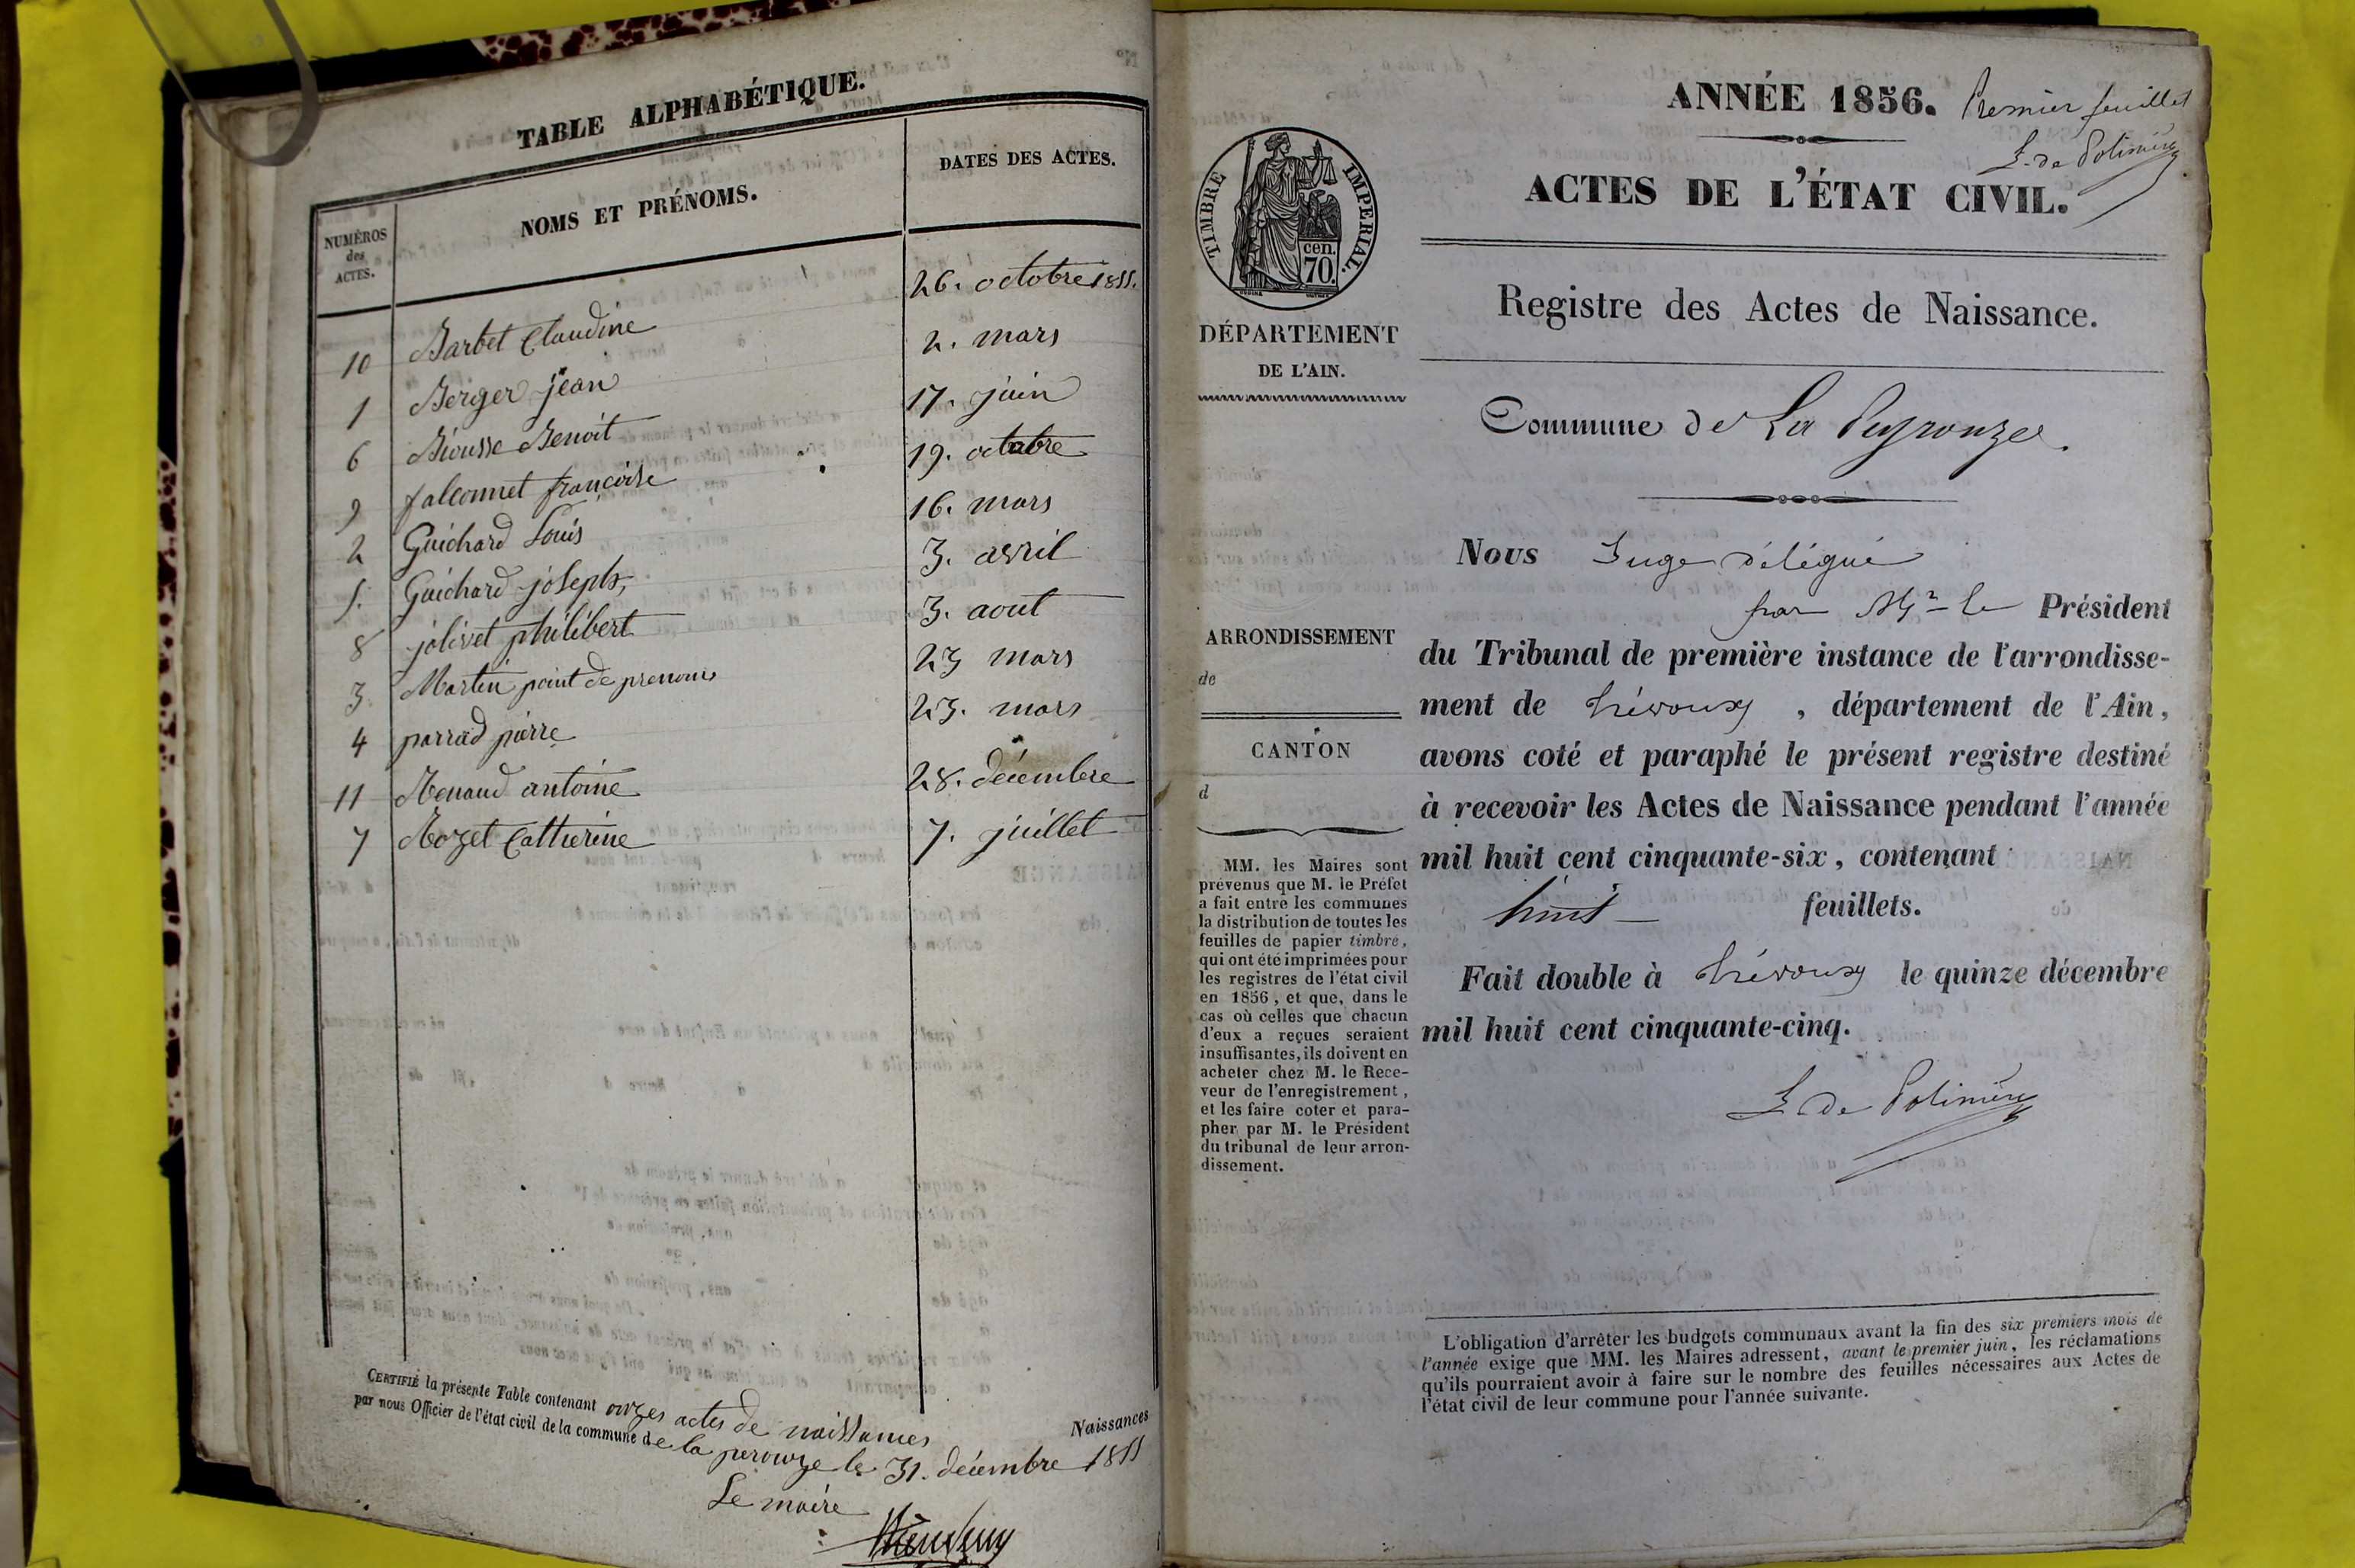 TABLE ALPHABÉTIQUE.
NUMÉROS des ACTES.
NOMS ET PRÉNOMS.
DATES DES ACTES.
10 Barbet Claudine 26. octobre 1855.
1 Berger jean 2. mars
6 Biousse Benoit 17. juin
9 falconnet françoise 19. octobre
2 Guichard Louis 16. mars
5. Guichard joseph, 3. avril
8 jolivet philibert 3. aout
3 Martin point de prenoms 23 mars
4 parrad pierre 23. mars
11 Renaud antoine 28. décembre
7 Rozet Catherine 7. juillet
CERTIFIÉ la présente Table contenant onzes actes de naissances
par nous Officier de l'état civil de la commune de la perouze le 31. décembre 1855
Naissances
Le maire
ANNÉE 1856. Premier feuillet
L. de Polinière
ACTES DE L'ÉTAT CIVIL.
TIMBRE IMPERIAL.
cen.
70.
DÉPARTEMENT
DE L'AIN.
ARRONDISSEMENT
de
CANTON
d
MM. les Maires sont
prévenus que M. le Préfet
a fait entre les communes
la distribution de toutes les
feuilles de papier timbré,
qui ont été imprimées pour
les registres de l'état civil
en 1856, et que, dans le
cas où celles que chacun
d'eux a reçues seraient
insuffisantes, ils doivent en
acheter chez M. le Rece-
veur de l'enregistrement,
et les faire coter et para-
pher par M. le Président
du tribunal de leur arron-
dissement.
Registre des Actes de Naissance.
Commune de La Peyrouze.
Nous Juge délégué
par Mr le Président
du Tribunal de première instance de l'arrondisse-
ment de Trévoux, département de l'Ain,
avons coté et paraphé le présent registre destiné
à recevoir les Actes de Naissance pendant l'année
mil huit cent cinquante-six, contenant
huit feuillets.
Fait double à Trévoux le quinze décembre
mil huit cent cinquante-cinq.
L de Polinière
L'obligation d'arrêter les budgets communaux avant la fin des six premiers mois de
l'année exige que MM. les Maires adressent, avant le premier juin, les réclamations
qu'ils pourraient avoir à faire sur le nombre des feuilles nécessaires aux Actes de
l'état civil de leur commune pour l'année suivante.